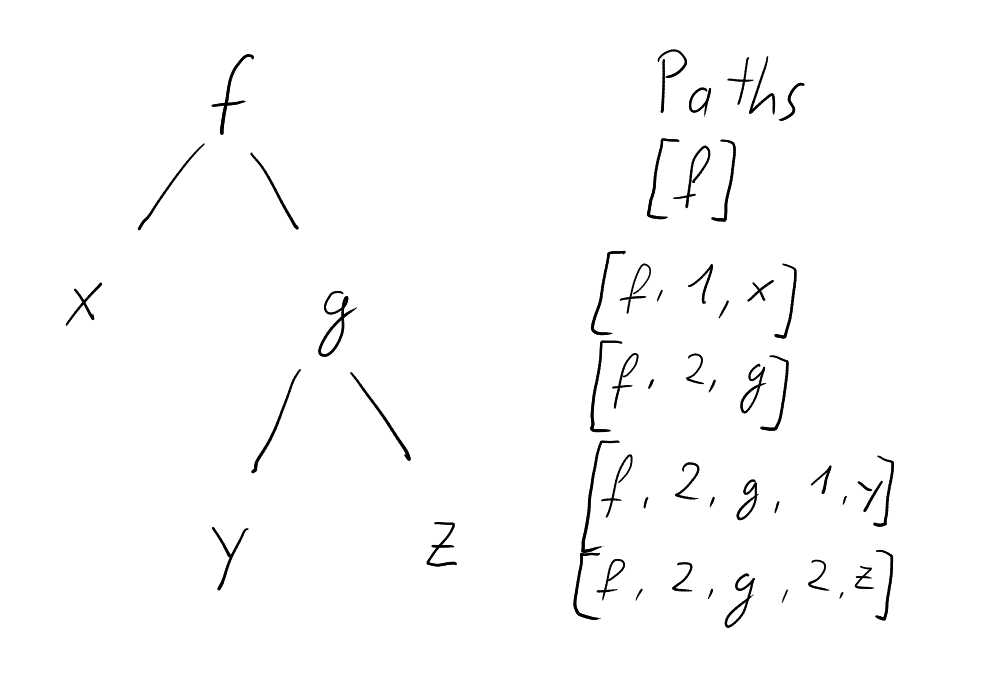 f
x g
y z
Paths
[f]
[f, 1, x]
[f, 2, g]
[f, 2, g, 1, y]
[f, 2, g, 2, z]